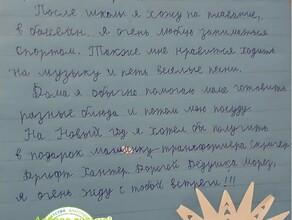 После школы я хожу на плавание,
в бассейн. Я очень люблю заниматься
спортом. Также мне нравится ходить
на музыку и петь весёлые песни.
Дома я обычно помогаю маме готовить
разные блюда и потом мою посуду.
На Новый год я хотел бы получить
в подарок машинку-трансформера
Дрифт Хантер Дорогой Дедушка Мороз,
я очень жду с тобой встречи!!!